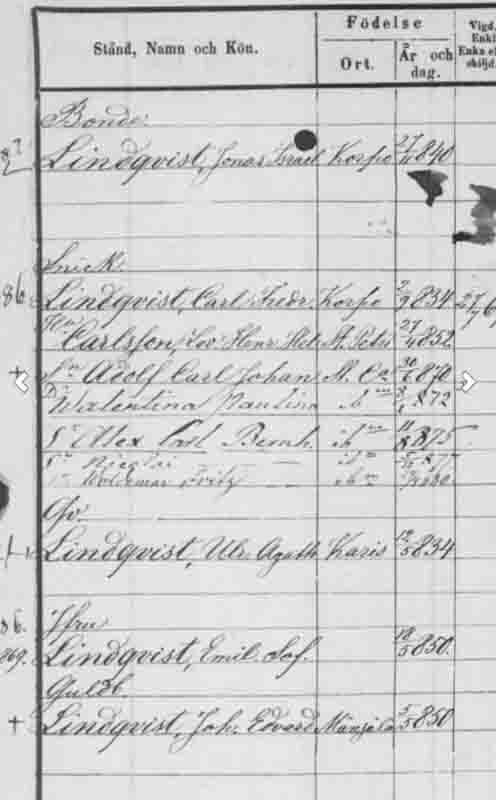 Stånd, Namn och Kön. Födelse Ort. År och dag. Vigd. Enkl. Enka el. skiljd.
Bonde.
Lindqvist, Jonas Israel Korpo 27/11 840
Snick.
86 Lindqvist, Carl Fredr. Korpo 2/9 834 27/6
Carlsson, Lov. Henr. 27/4 852
+ Sn Adolf Carl Johan 30/6 870
Dr Walentina Paulina ib m 872
Sn Alex Carl Bernh. ib m 11/8 875
Sn Nicolai — ib m 877
Sn Woldemar Fritz ib m 880
Gv.
Lindqvist, Ulr. Agath Karis 12/5 834
86. Jfru
869. Lindqvist, Emil. Sof. 18/5 850.
Guldb.
+ Lindqvist, Joh. Edvard Mäntsälä 5/5 850